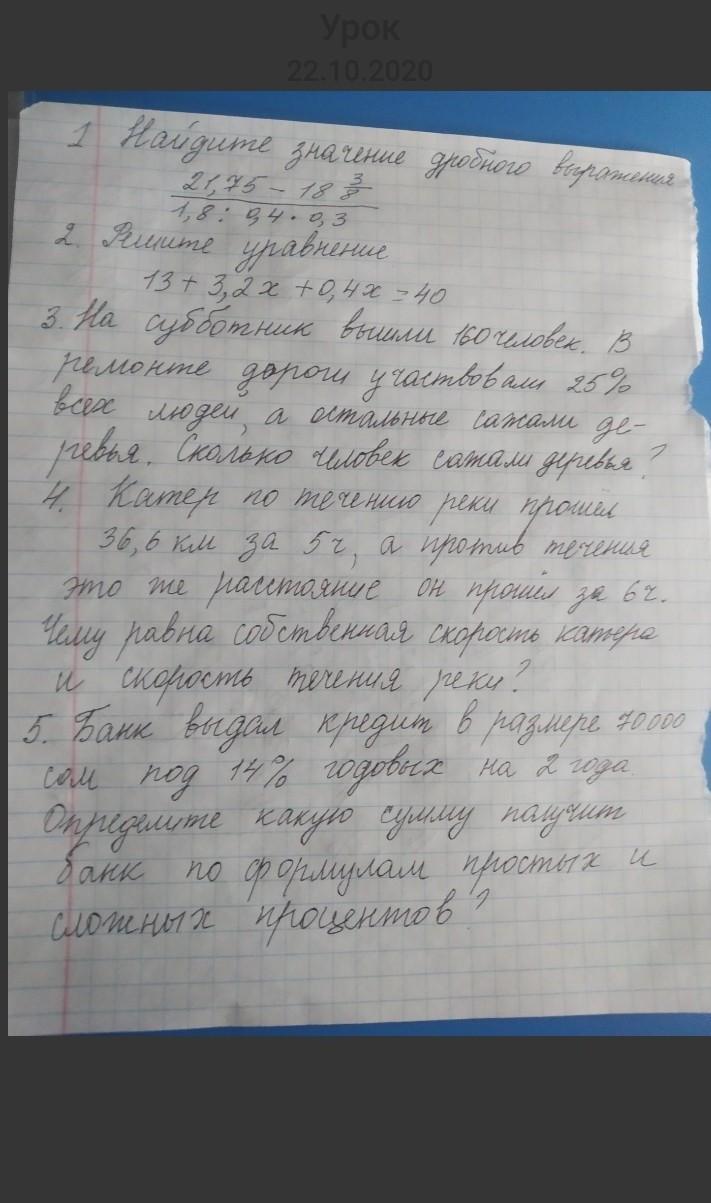 Урок
22.10.2020
1 Найдите значение дробного выражения
21,75 - 18 3/8
1,8 : 0,4 · 0,3
2. Решите уравнение
13 + 3,2x + 0,4x = 40
3. На субботник вышли 160 человек. В
ремонте дороги участвовали 25%
всех людей, а остальные сажали де-
ревья. Сколько человек сажали деревья?
4. Катер по течению реки прошёл
36,6 км за 5ч, а против течения
это же расстояние он прошёл за 6ч.
Чему равна собственная скорость катера
и скорость течения реки?
5. Банк выдал кредит в размере 70000
сом под 14% годовых на 2 года.
Определите какую сумму получит
банк по формулам простых и
сложных процентов?